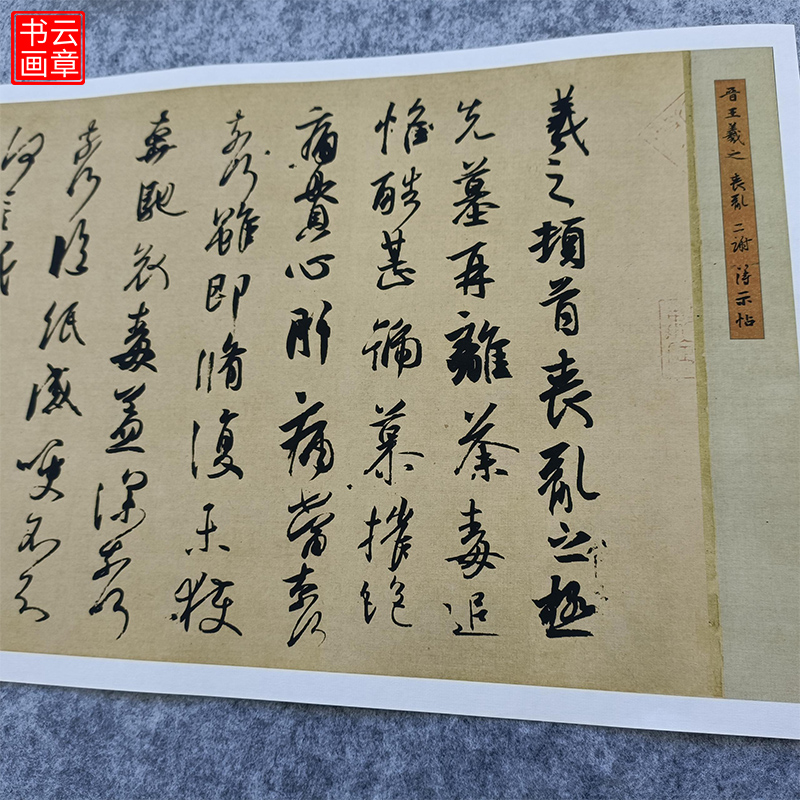 云章
书画
晋王羲之 丧乱 二谢 得示帖
羲之頓首喪亂之極
先墓再離荼毒追
惟酷甚號慕摧絕
痛貫心肝痛當奈何
奈何雖即脩復未獲
奔馳哀毒益深奈何
奈何臨紙感哽不知
何言